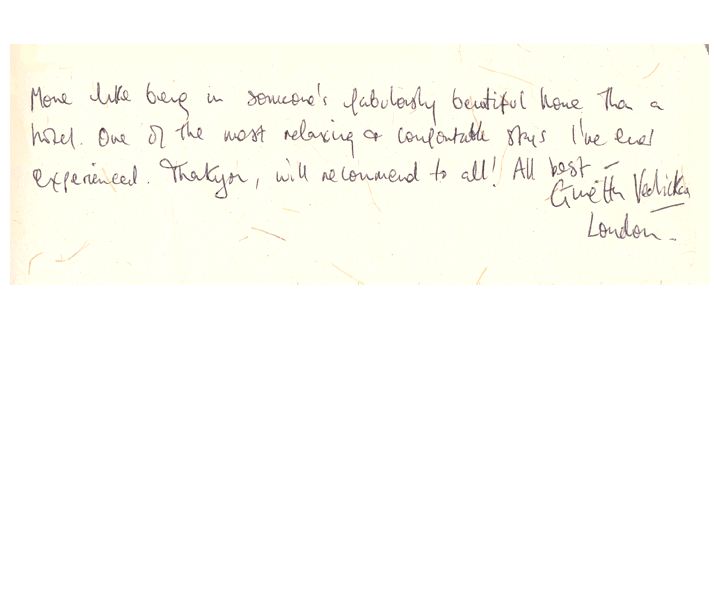 More like being in someone's fabulously beautiful home than a
hotel. One of the most relaxing & comfortable stays I've ever
experienced. Thankyou, will recommend to all! All best –
London.